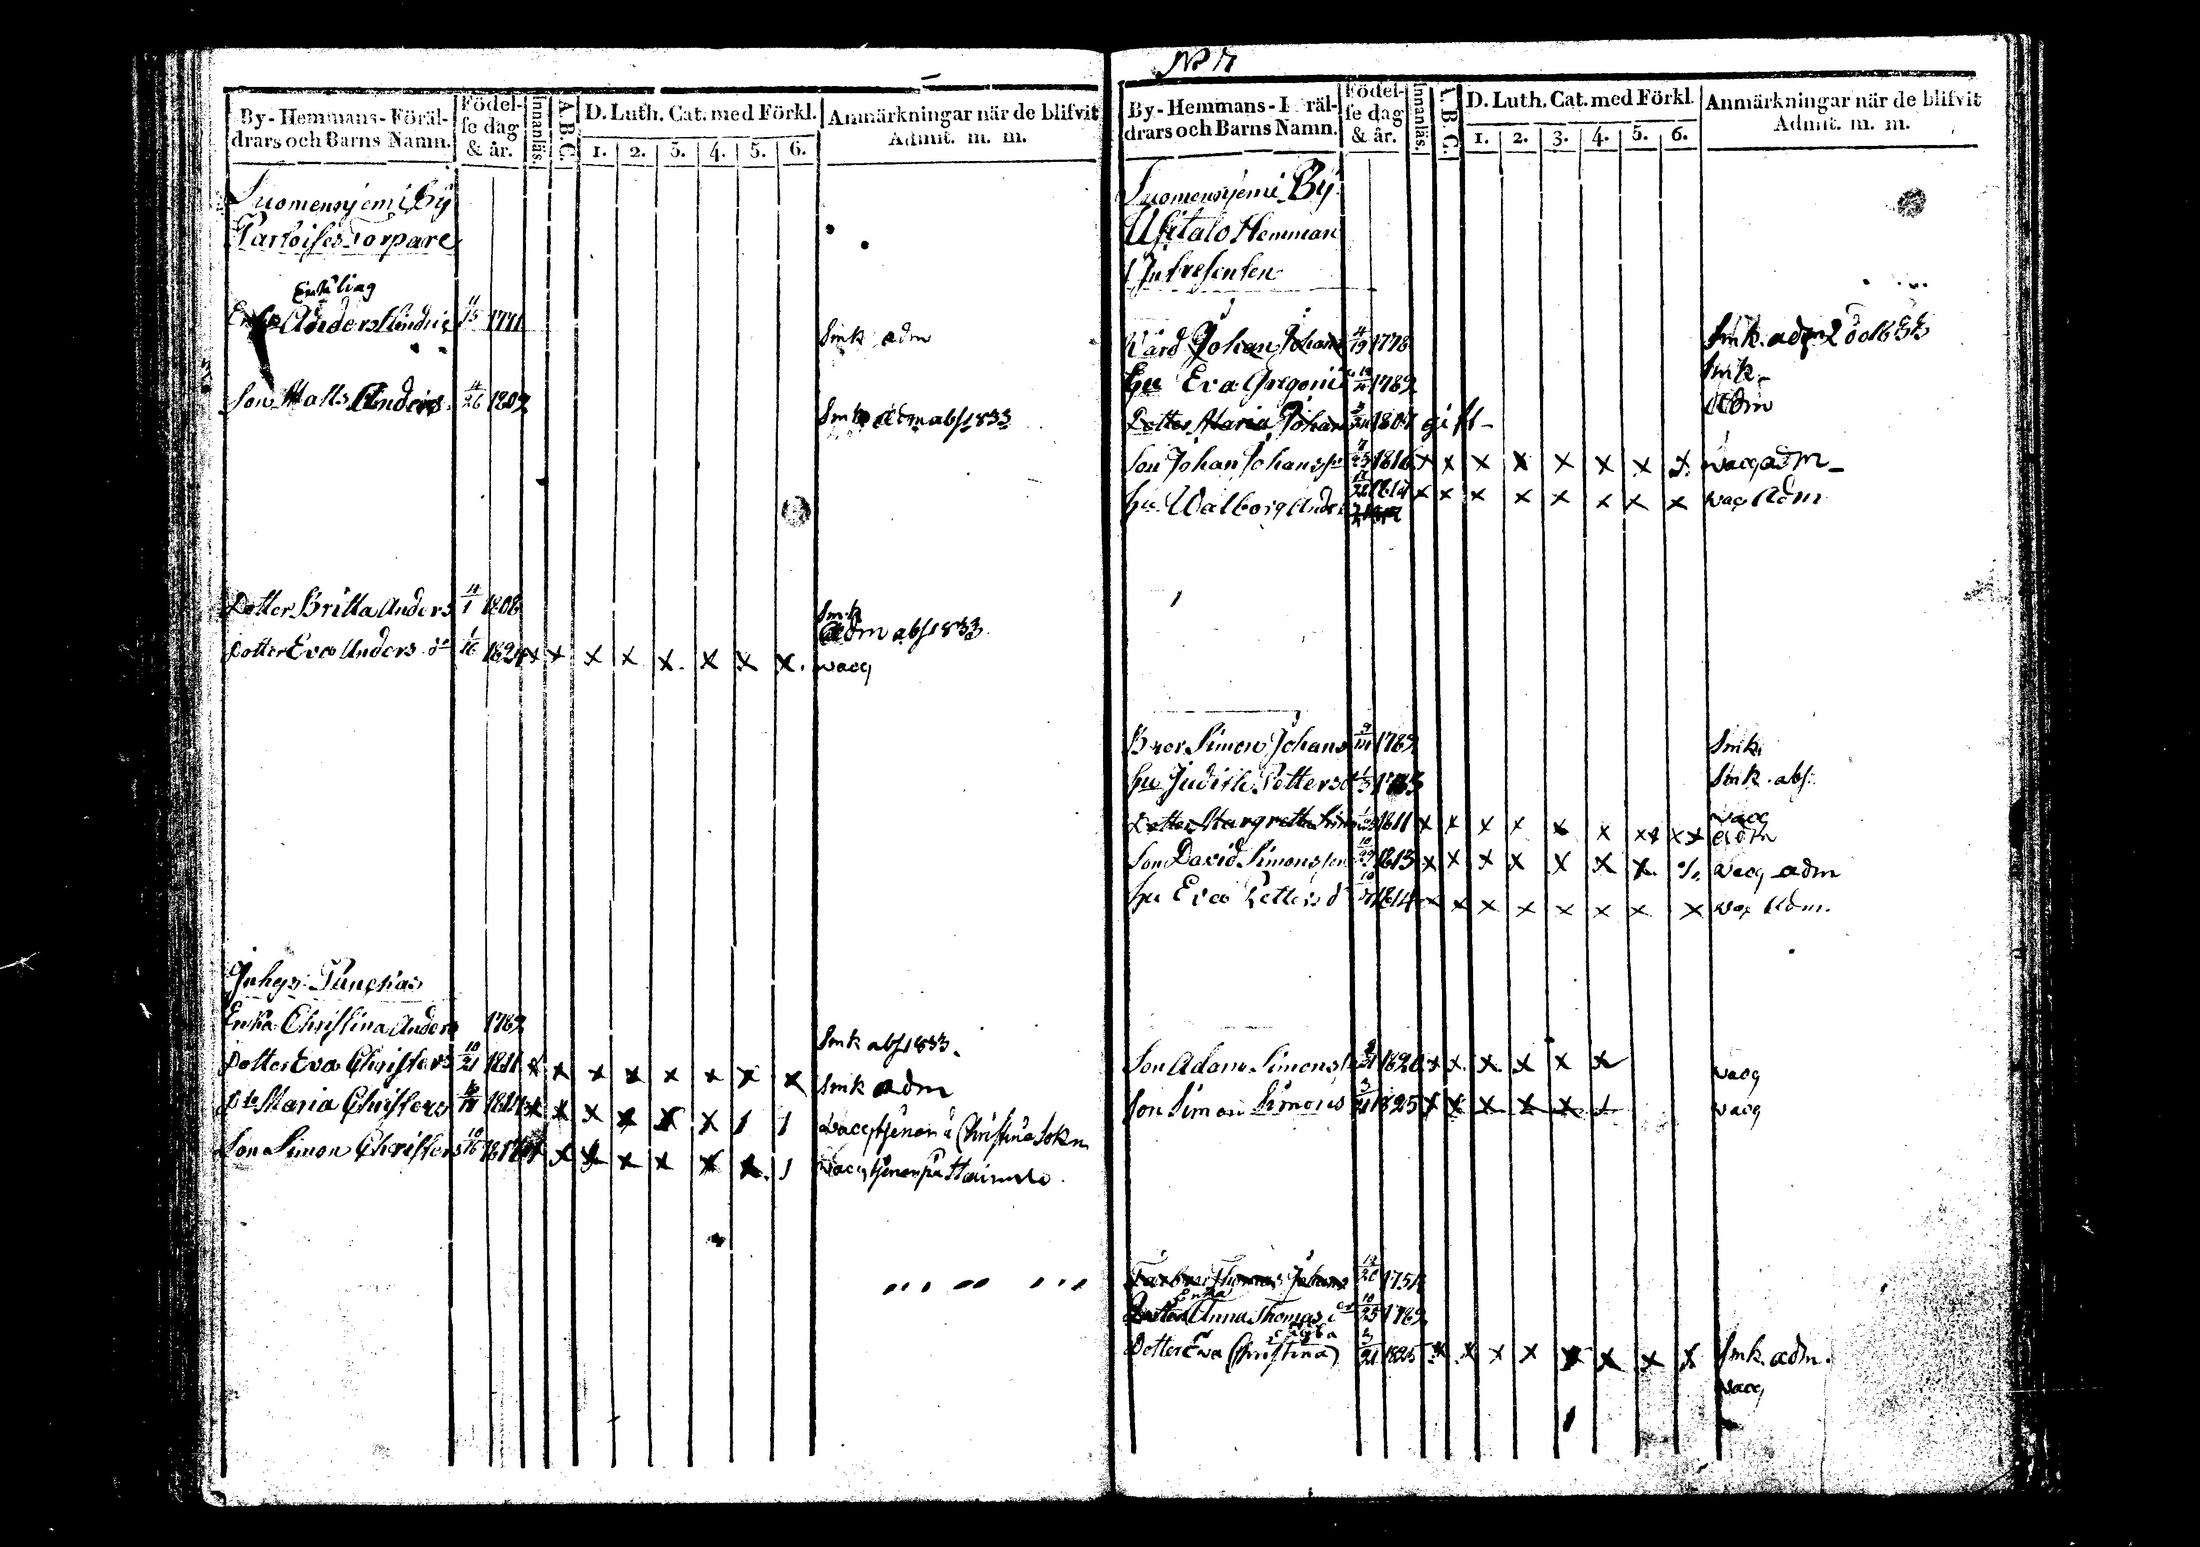 By-Hemmans-Föräl-
drars och Barns Namn.
Födel-
se dag
& år.
Innanläs.
A.B.C.
D. Luth. Cat. med Förkl.
1. 2. 3. 4. 5. 6.
Anmärkningar när de blifvit
Admit. m. m.
Suomensyemi By
Torpare
Enkling
Anders 1771
Smk adm
Son Matts Anders 4/26 1802
Smk adm abs 1833
Dotter Britta Anders 11/1 1808
Smk
Adm abs 1833
Dotter Eva Anders dr 1/16 1824 x x x x x x x x wacq
Inhys
Enka Christina Anders 1782
Smk abs 1833.
Dotter Eva Christers 10/21 1811 x x x x x x x x Smk adm
Dto Maria Christers 1814 x x x x x x 1 1 wacq tjenar i Christina Sokn
Son Simon Christers 10/16 1817 x x x x x x x 1 wacq tjenar på
No
By-Hemmans-Föräl-
drars och Barns Namn.
Födel-
se dag
& år.
Innanläs.
A.B.C.
D. Luth. Cat. med Förkl.
1. 2. 3. 4. 5. 6.
Anmärkningar när de blifvit
Admit. m. m.
Suomensyemi By
Usitalo Hemman
Intresenten
Wärd Johan Johans 4/19 1778
Smk. adm
hu Eva Gregori 1782
Smk.
Adm
Dotter Maria Johans 1807 gift
Son Johan Johansson 1816 x x x x x x x x wacq adm
hu Walborg Anders x x x x x x x x wacq Adm
Bror Simon Johans 1782
Smk
hu Judith Petters d 1/3
Smk. abs
Dotter Margretha Simons 1811 x x x x x x xx xx wacq
adm
Son David Simonsson 10/29 1813 x x x x x x x wacq adm
hu Eva Petters d 1814 x x x x x x x x wacq Adm.
Son Adam Simons 1820 x x x x x x wacq
Son Simon Simons 3/21 1825 x x x x x wacq
Thomas Johans 12/20
Enka
Dotter Anna Thomas dr 10/25 1782
Dotter Eva Christina 3/21 1825 x x x x x x x x Smk. adm.
wacq